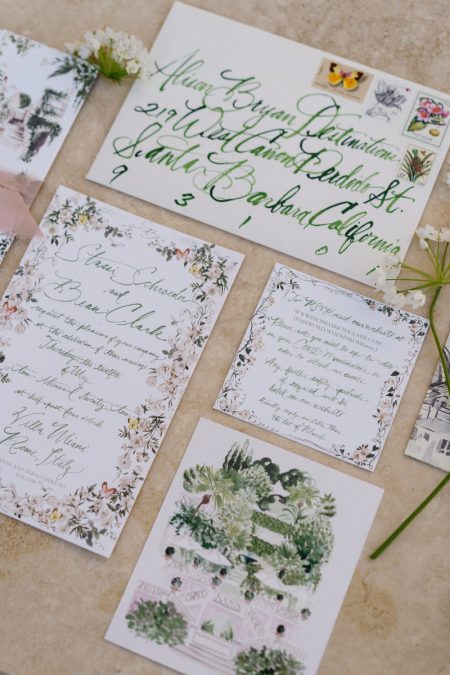 Alison Bryan Destinations
219 West Canon Perdido St.
Santa Barbara, California
9 3 1 0 1
Stassi Schroeder
and
Beau Clark
request the pleasure of your company
at the celebration of their marriage
Thursday, the twelfth
of May
Two thousand twenty-two
at half past four o'clock
Villa Miani
Rome, Italy
DINNER AND
TO FOLLOW
To RSVP visit our website at
Please note, you must be up to
in order to attend our events.
Any further safety
if required, will be
on our website
Kindly reply no later than
the 1st of March